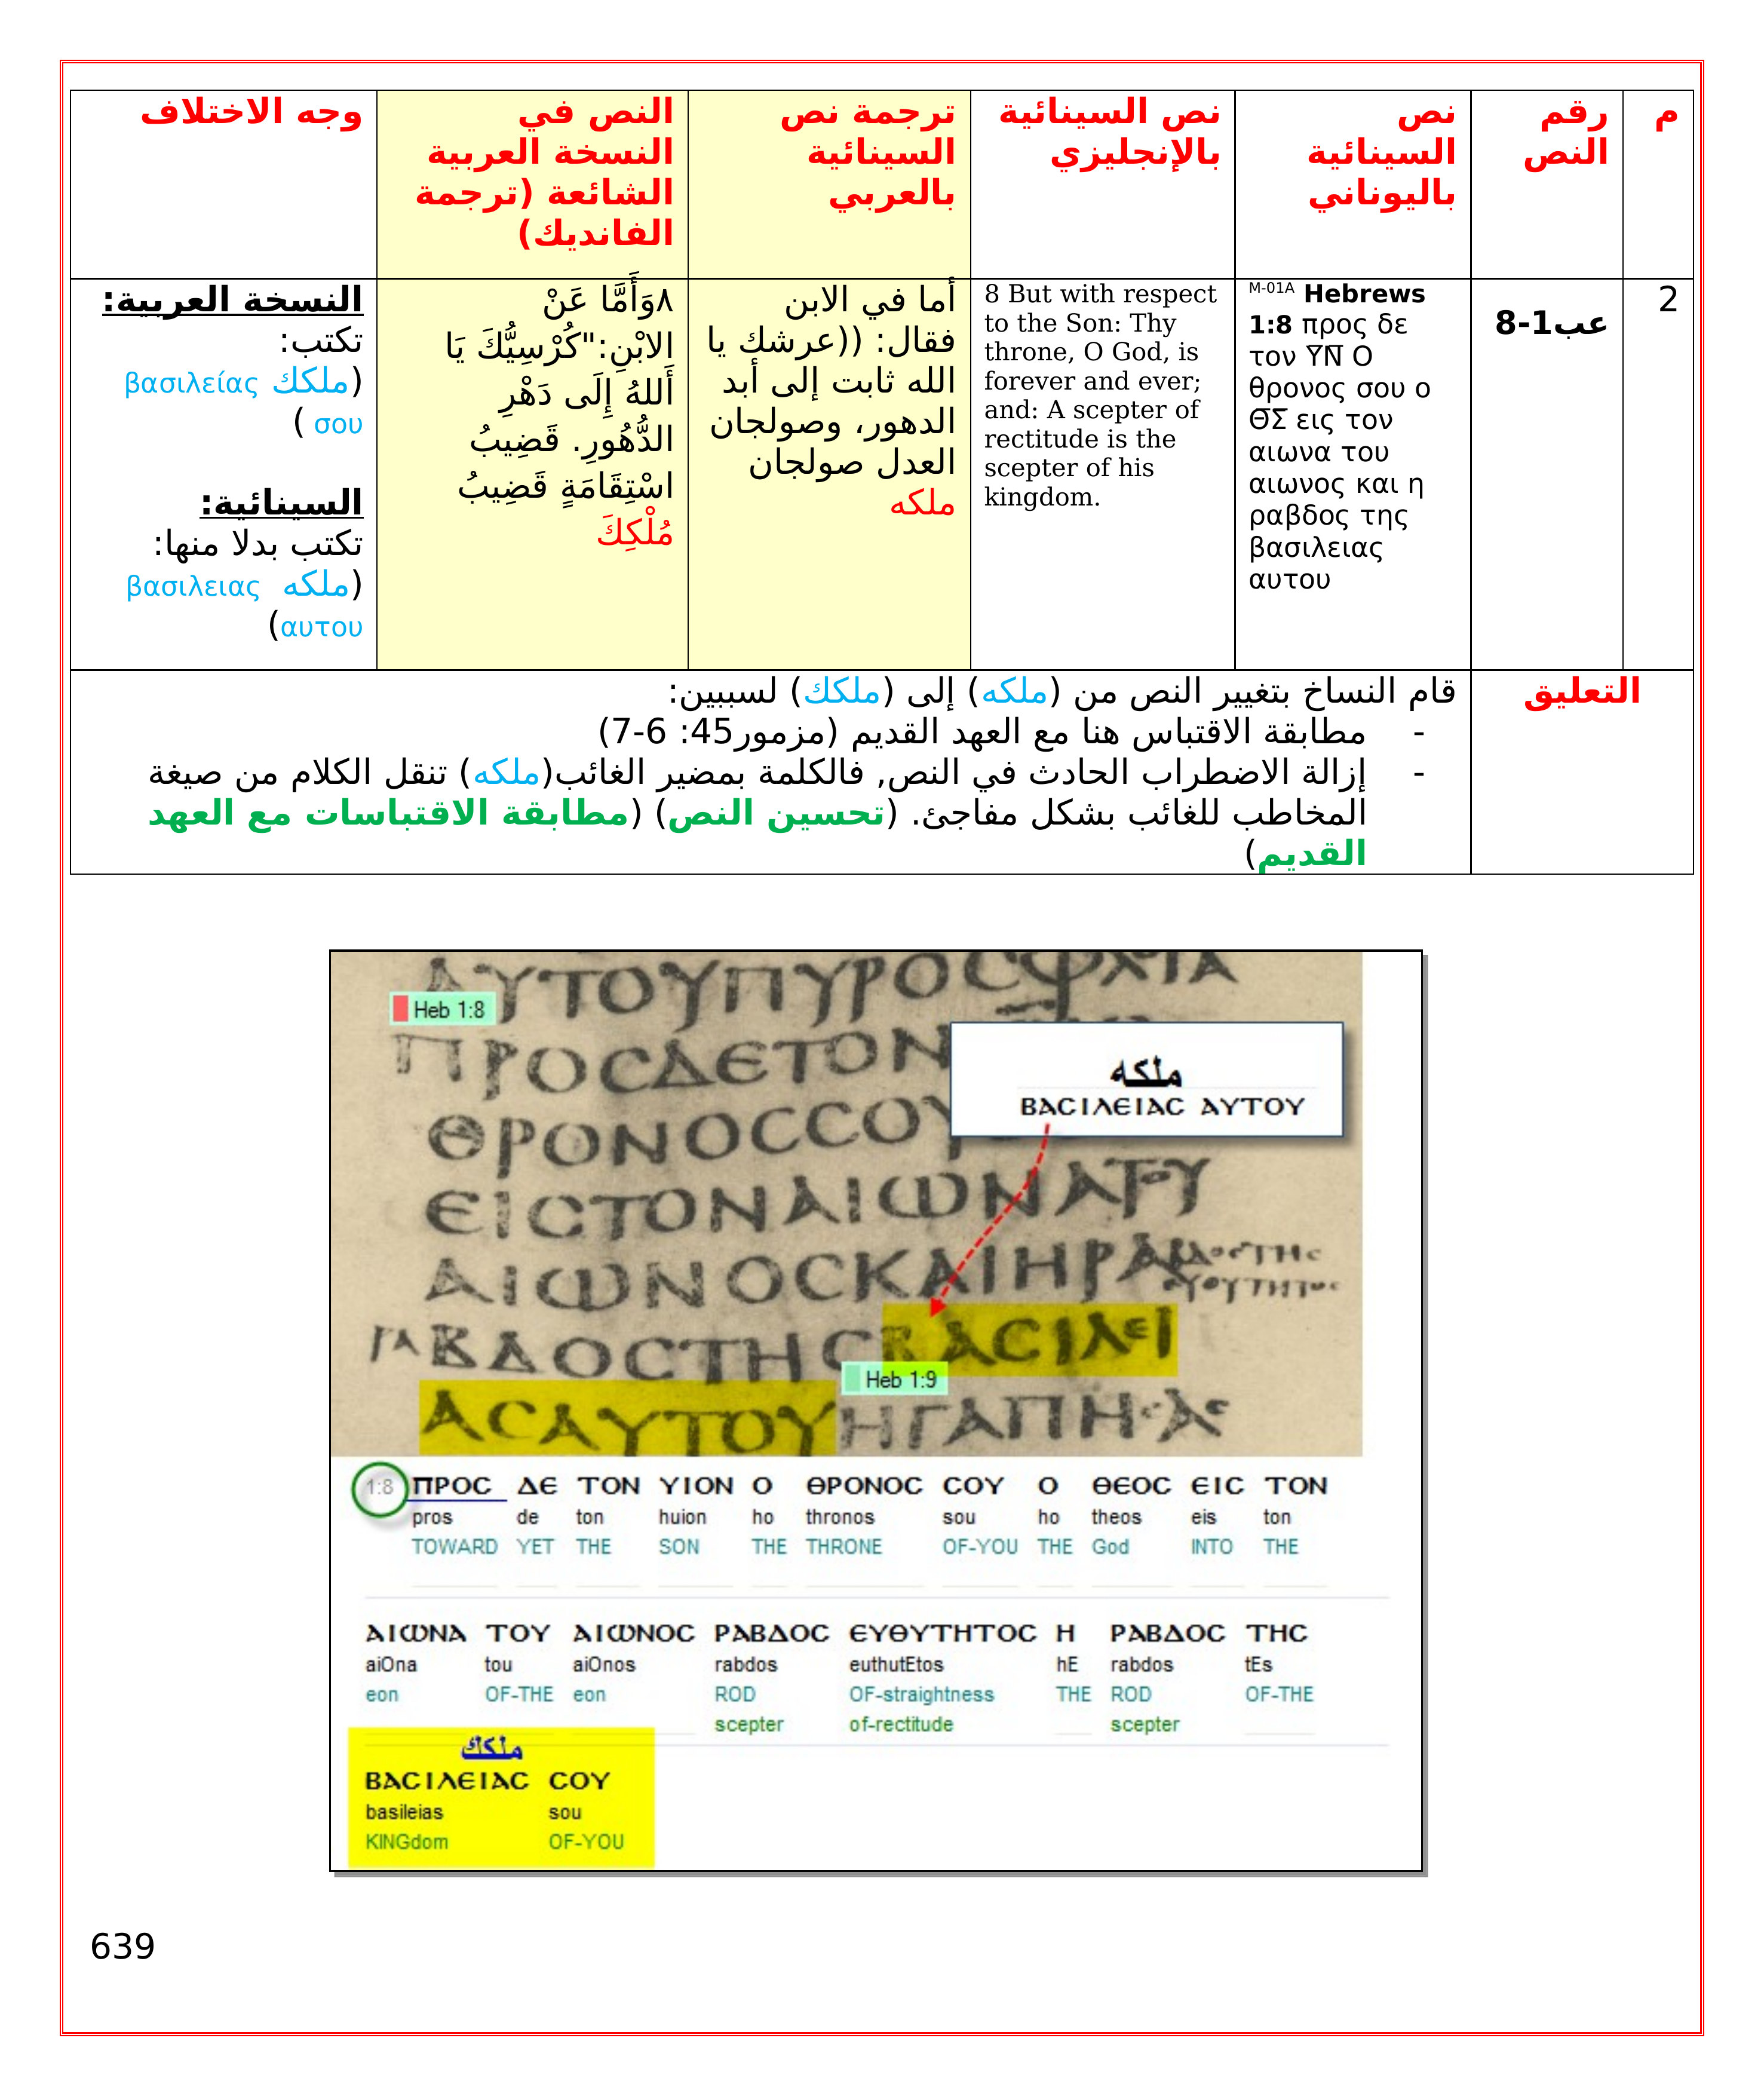 م
رقم
النص
نص
السينائية
باليوناني
نص السينائية
بالإنجليزي
ترجمة نص
السينائية
بالعربي
النص في
النسخة العربية
الشائعة (ترجمة
الفانديك)
وجه الاختلاف
2
عب1-8
M-01A Hebrews
1:8 προς δε
τον Υ̅Ν̅ Ο
θρονος σου ο
Θ̅Σ̅ εις τον
αιωνα του
αιωνος και η
ραβδος της
βασιλειας
αυτου
8 But with respect
to the Son: Thy
throne, O God, is
forever and ever;
and: A scepter of
rectitude is the
scepter of his
kingdom.
أما في الابن
فقال: ((عرشك يا
الله ثابت إلى أبد
الدهور، وصولجان
العدل صولجان
ملكه
٨وَأَمَّا عَنْ
الابْنِ:"كُرْسِيُّكَ يَا
أَللهُ إِلَى دَهْرِ
الدُّهُورِ. قَضِيبُ
اسْتِقَامَةٍ قَضِيبُ
مُلْكِكَ
النسخة العربية:
تكتب:
(ملكك βασιλείας
σου )
السينائية:
تكتب بدلا منها:
(ملكه βασιλειας
αυτου)
التعليق
قام النساخ بتغيير النص من (ملكه) إلى (ملكك) لسببين:
- مطابقة الاقتباس هنا مع العهد القديم (مزمور45: 6-7)
- إزالة الاضطراب الحادث في النص, فالكلمة بمضير الغائب(ملكه) تنقل الكلام من صيغة
المخاطب للغائب بشكل مفاجئ. (تحسين النص) (مطابقة الاقتباسات مع العهد
القديم)
ΑΥΤΟΥΠΥΡΟϹΦΛΟΓΑ
Heb 1:8
ΠΡΟϹΔΕΤΟΝ
ملكه
ΒΑϹΙΛΕΙΑϹ ΑΥΤΟΥ
ΘΡΟΝΟϹϹΟΥ
ΕΙϹΤΟΝΑΙΩΝΑΤΟΥ
ΑΙΩΝΟϹΚΑΙΗΡΑ
ΒΔΟϹΤΗϹΒΑϹΙΛΕΙ
Heb 1:9
ΑϹΑΥΤΟΥΗΓΑΠΗϹΑϹ
1:8 ΠΡΟϹ ΔΕ ΤΟΝ ΥΙΟΝ Ο ΘΡΟΝΟϹ ϹΟΥ Ο ΘΕΟϹ ΕΙϹ ΤΟΝ
pros de ton huion ho thronos sou ho theos eis ton
TOWARD YET THE SON THE THRONE OF-YOU THE God INTO THE
ΑΙΩΝΑ ΤΟΥ ΑΙΩΝΟϹ ΡΑΒΔΟϹ ΕΥΘΥΤΗΤΟϹ Η ΡΑΒΔΟϹ ΤΗϹ
aiOna tou aiOnos rabdos euthutEtos hE rabdos tEs
eon OF-THE eon ROD OF-straightness THE ROD OF-THE
scepter of-rectitude scepter
ملكك
ΒΑϹΙΛΕΙΑϹ ϹΟΥ
basileias sou
KINGdom OF-YOU
639